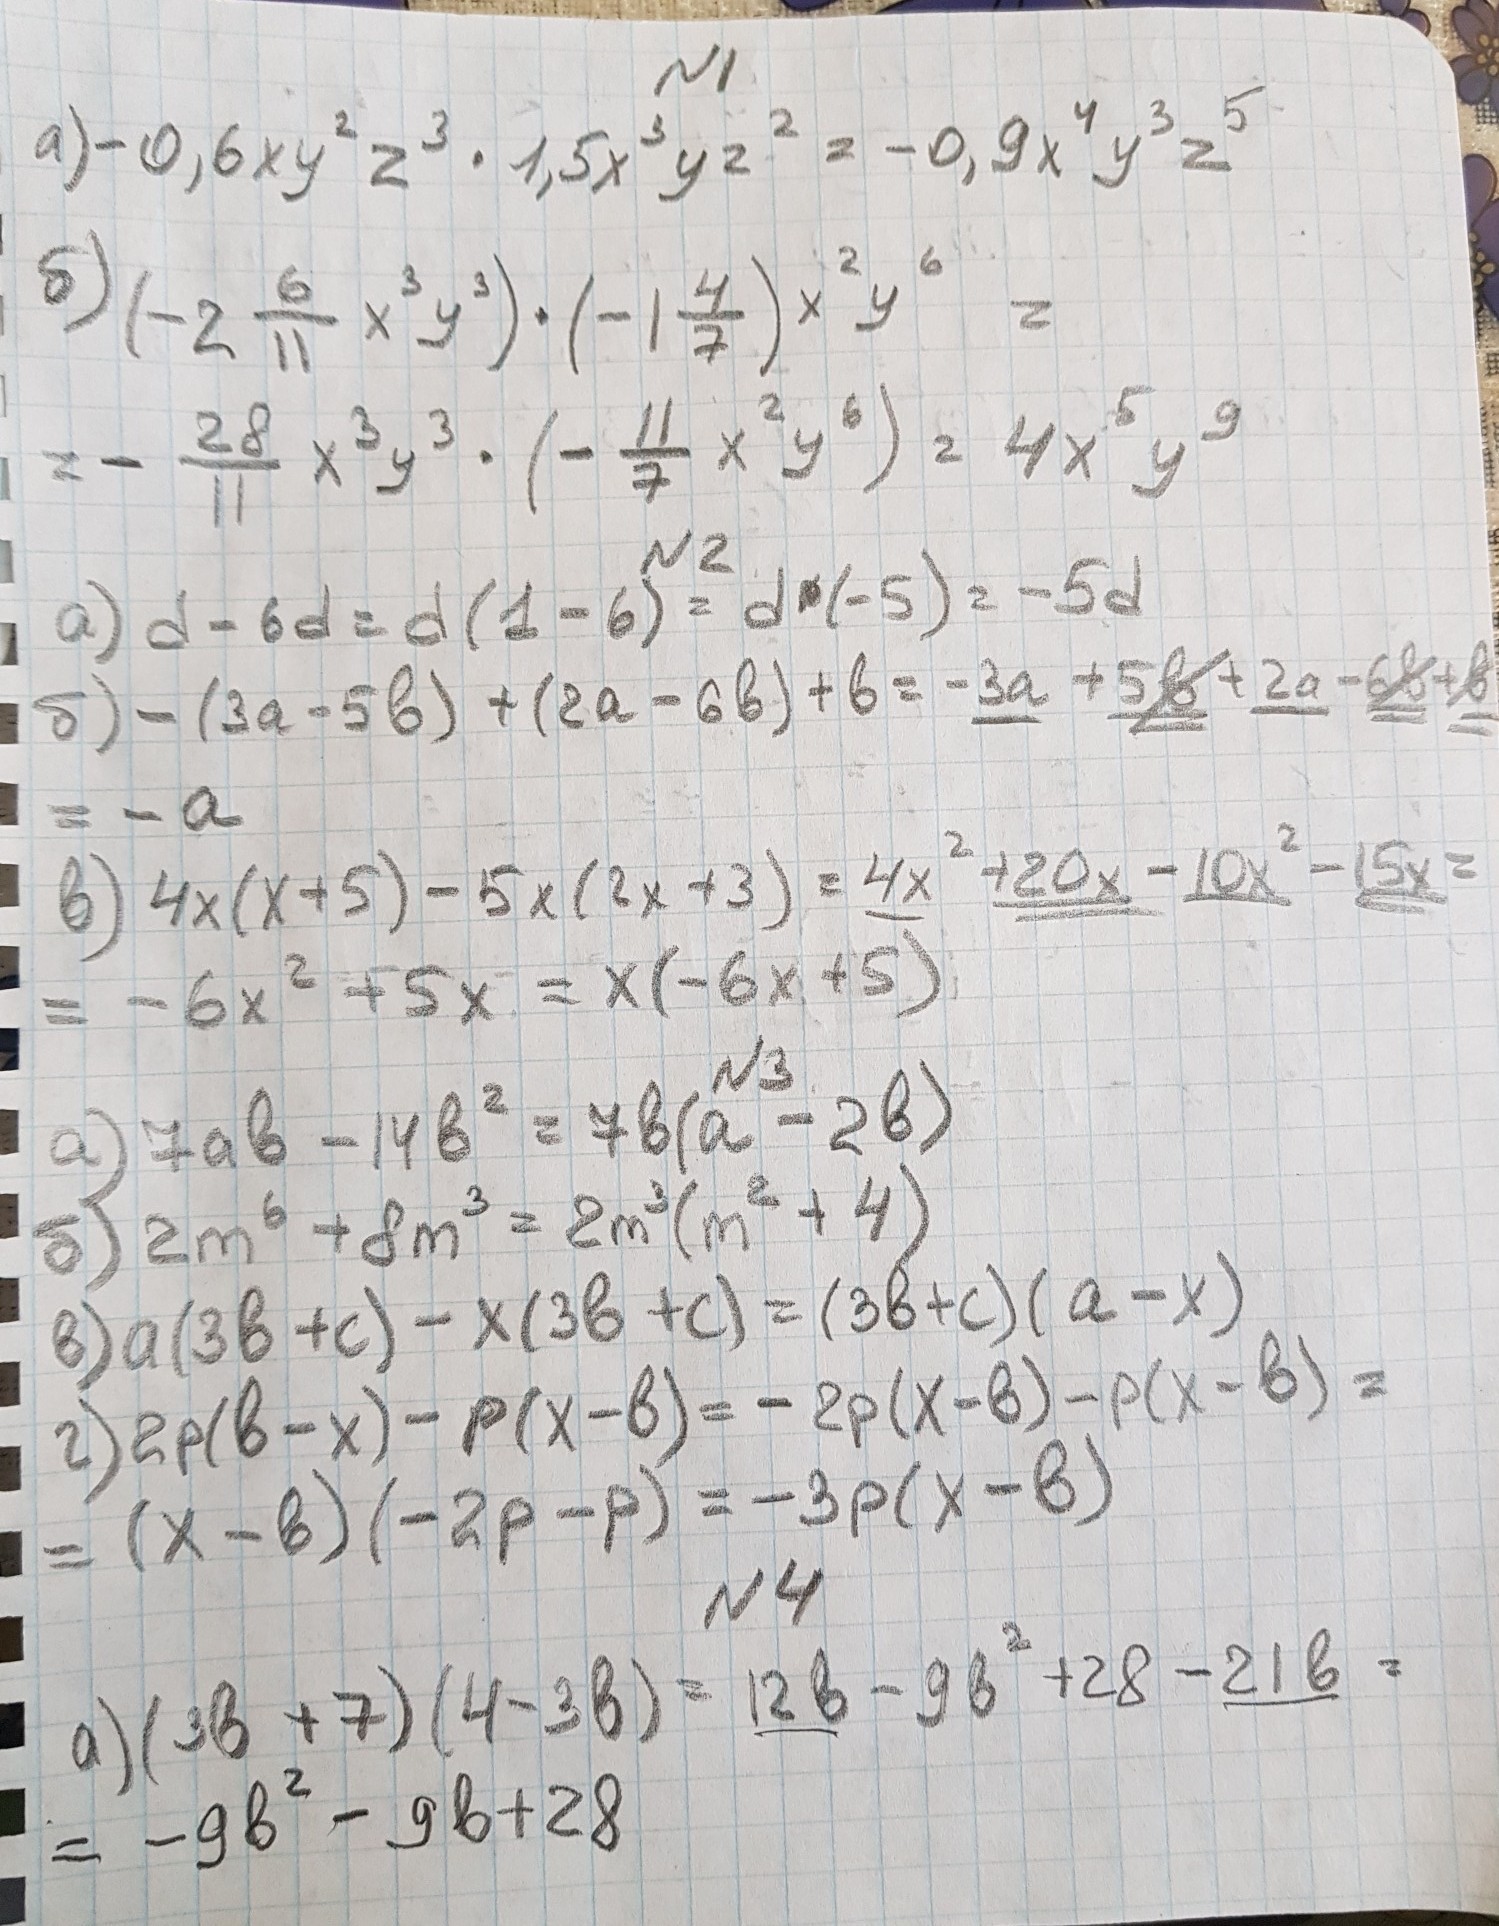 №1
а) -0,6xy²z³ · 1,5x³yz² = -0,9x⁴y³z⁵
б) (-2 6/11 x³y³) · (-1 4/7) x²y⁶ =
= - 28/11 x³y³ · (- 11/7 x²y⁶) = 4x⁵y⁹
№2
а) d - 6d = d(1 - 6) = d·(-5) = -5d
б) -(3a - 5b) + (2a - 6b) + b = -3a + 5b + 2a - 6b + b
= -a
в) 4x(x+5) - 5x(2x+3) = 4x² + 20x - 10x² - 15x =
= -6x² + 5x = x(-6x+5)
№3
а) 7ab - 14b² = 7b(a - 2b)
б) 2m⁶ + 8m³ = 2m³(m² + 4)
в) a(3b+c) - x(3b+c) = (3b+c)(a-x)
г) 2p(b-x) - p(x-b) = -2p(x-b) - p(x-b) =
= (x-b)(-2p-p) = -3p(x-b)
№4
а) (3b+7)(4-3b) = 12b - 9b² + 28 - 21b =
= -9b² - 9b + 28